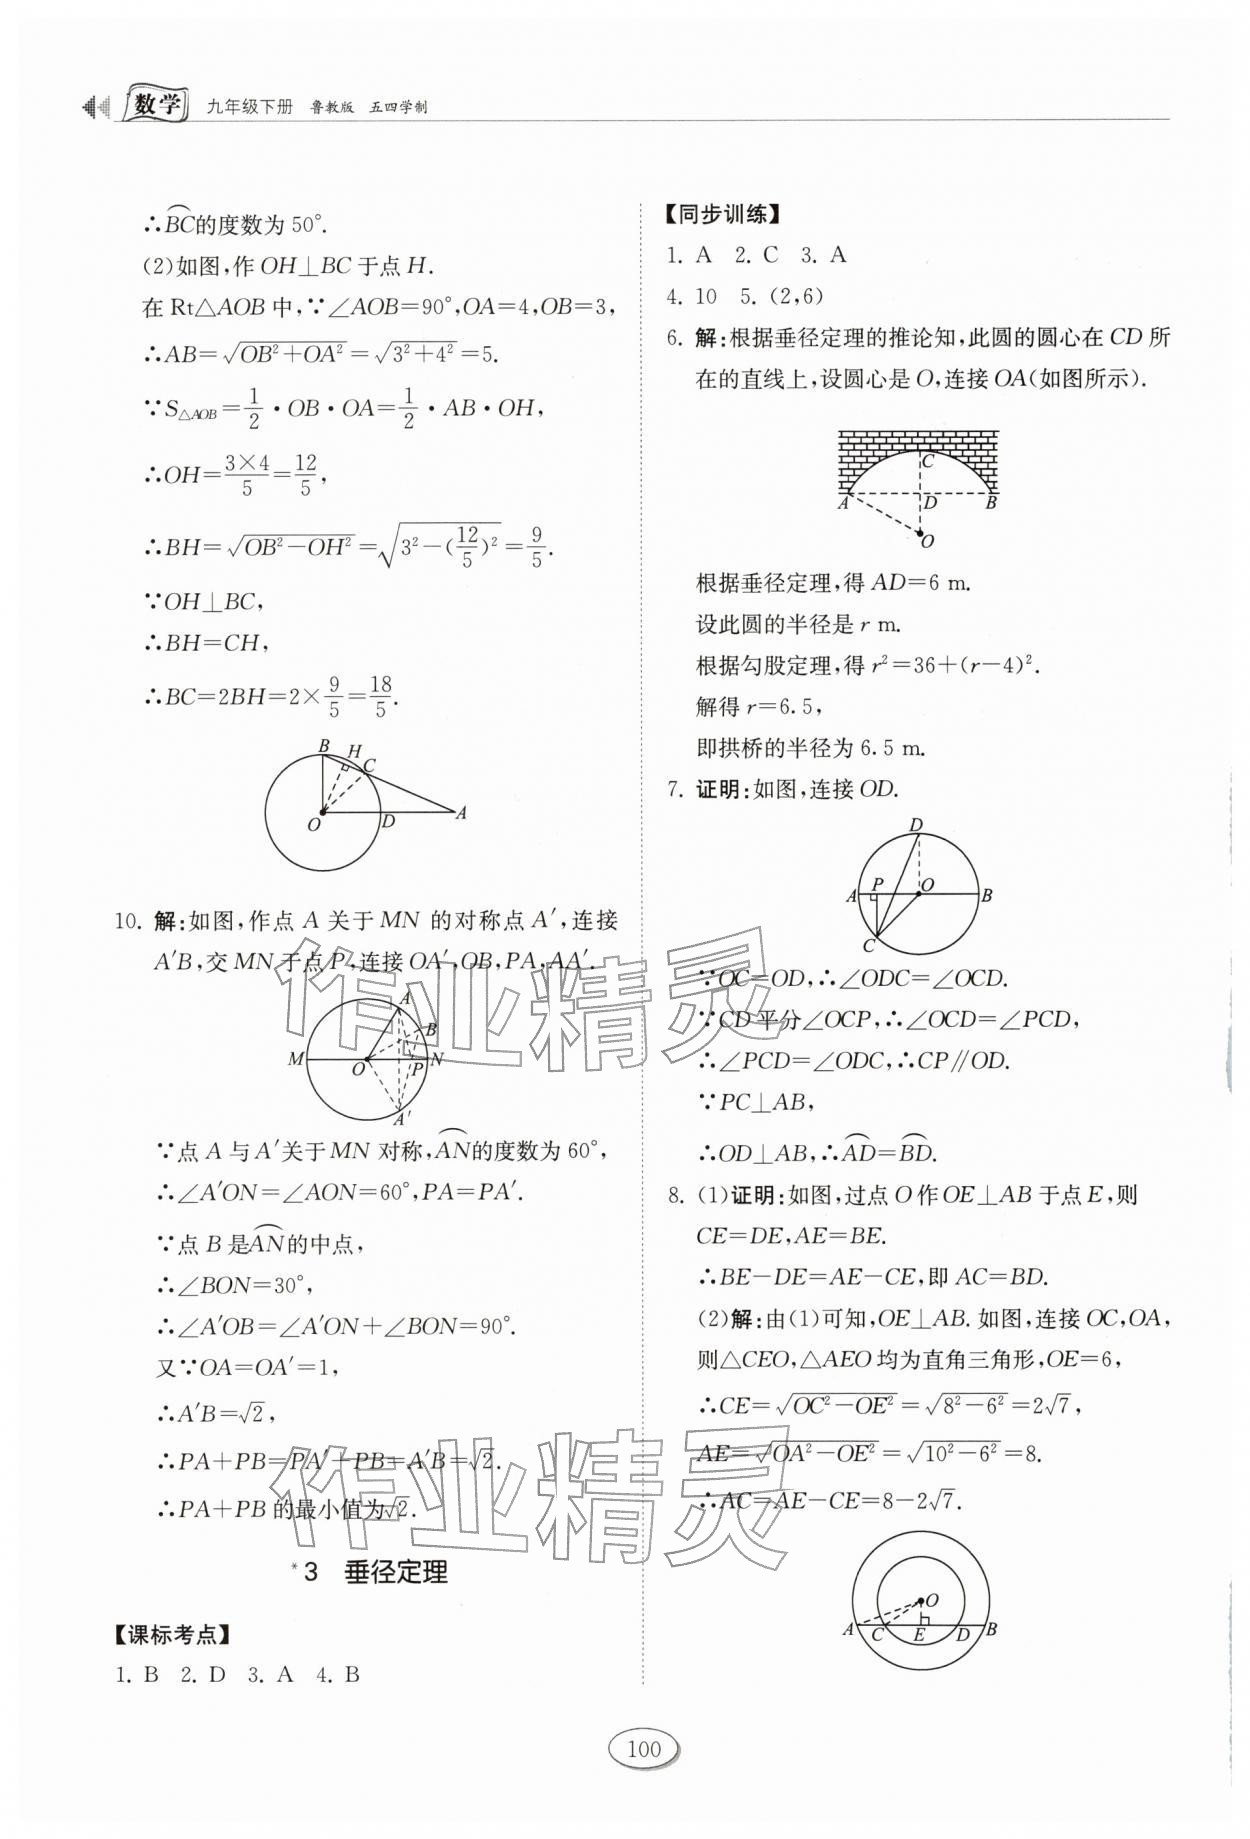 数学 九年级下册 鲁教版 五四学制
∴B͡C的度数为50°.
(2)如图,作OH⊥BC于点H.
在Rt△AOB中,∵∠AOB=90°,OA=4,OB=3,
∴AB=√(OB²+OA²)=√(3²+4²)=5.
∵S△AOB=1/2·OB·OA=1/2·AB·OH,
∴OH=(3×4)/5=12/5,
∴BH=√(OB²-OH²)=√(3²-(12/5)²)=9/5.
∵OH⊥BC,
∴BH=CH,
∴BC=2BH=2×9/5=18/5.
B H C O D A
10. 解:如图,作点A关于MN的对称点A′,连接
A′B,交MN于点P,连接OA′,OB,PA,AA′.
A B M O P N A′
∵点A与A′关于MN对称,A͡N的度数为60°,
∴∠A′ON=∠AON=60°,PA=PA′.
∵点B是A͡N的中点,
∴∠BON=30°,
∴∠A′OB=∠A′ON+∠BON=90°.
又∵OA=OA′=1,
∴A′B=√2,
∴PA+PB=PA′+PB=A′B=√2.
∴PA+PB的最小值为√2.
*3 垂径定理
【课标考点】
1. B 2. D 3. A 4. B
【同步训练】
1. A 2. C 3. A
4. 10 5. (2,6)
6. 解:根据垂径定理的推论知,此圆的圆心在CD所
在的直线上,设圆心是O,连接OA(如图所示).
C A D B O
根据垂径定理,得AD=6 m.
设此圆的半径是r m.
根据勾股定理,得r²=36+(r-4)².
解得r=6.5,
即拱桥的半径为6.5 m.
7. 证明:如图,连接OD.
D A P O B C
∵OC=OD,∴∠ODC=∠OCD.
∵CD平分∠OCP,∴∠OCD=∠PCD,
∴∠PCD=∠ODC,∴CP∥OD.
∵PC⊥AB,
∴OD⊥AB,∴A͡D=B͡D.
8. (1)证明:如图,过点O作OE⊥AB于点E,则
CE=DE,AE=BE.
∴BE-DE=AE-CE,即AC=BD.
(2)解:由(1)可知,OE⊥AB.如图,连接OC,OA,
则△CEO,△AEO均为直角三角形,OE=6,
∴CE=√(OC²-OE²)=√(8²-6²)=2√7,
AE=√(OA²-OE²)=√(10²-6²)=8.
∴AC=AE-CE=8-2√7.
O A C E D B
作业精灵
作业精灵
100